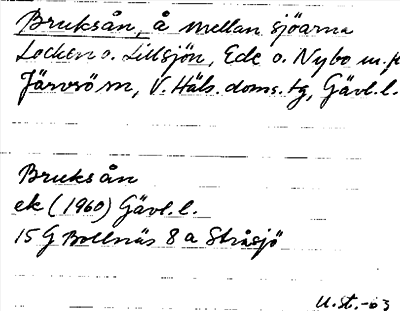 Bruksån, å mellan sjöarna
Locken o. Lillsjön, Ede o. Nybo m.fl
Järvsö sn, V. Häls. doms. tg, Gävl. l.
Bruksån
ek (1960) Gävl. l.
15 G Bollnäs 8 a Stråsjö
U.st.-63